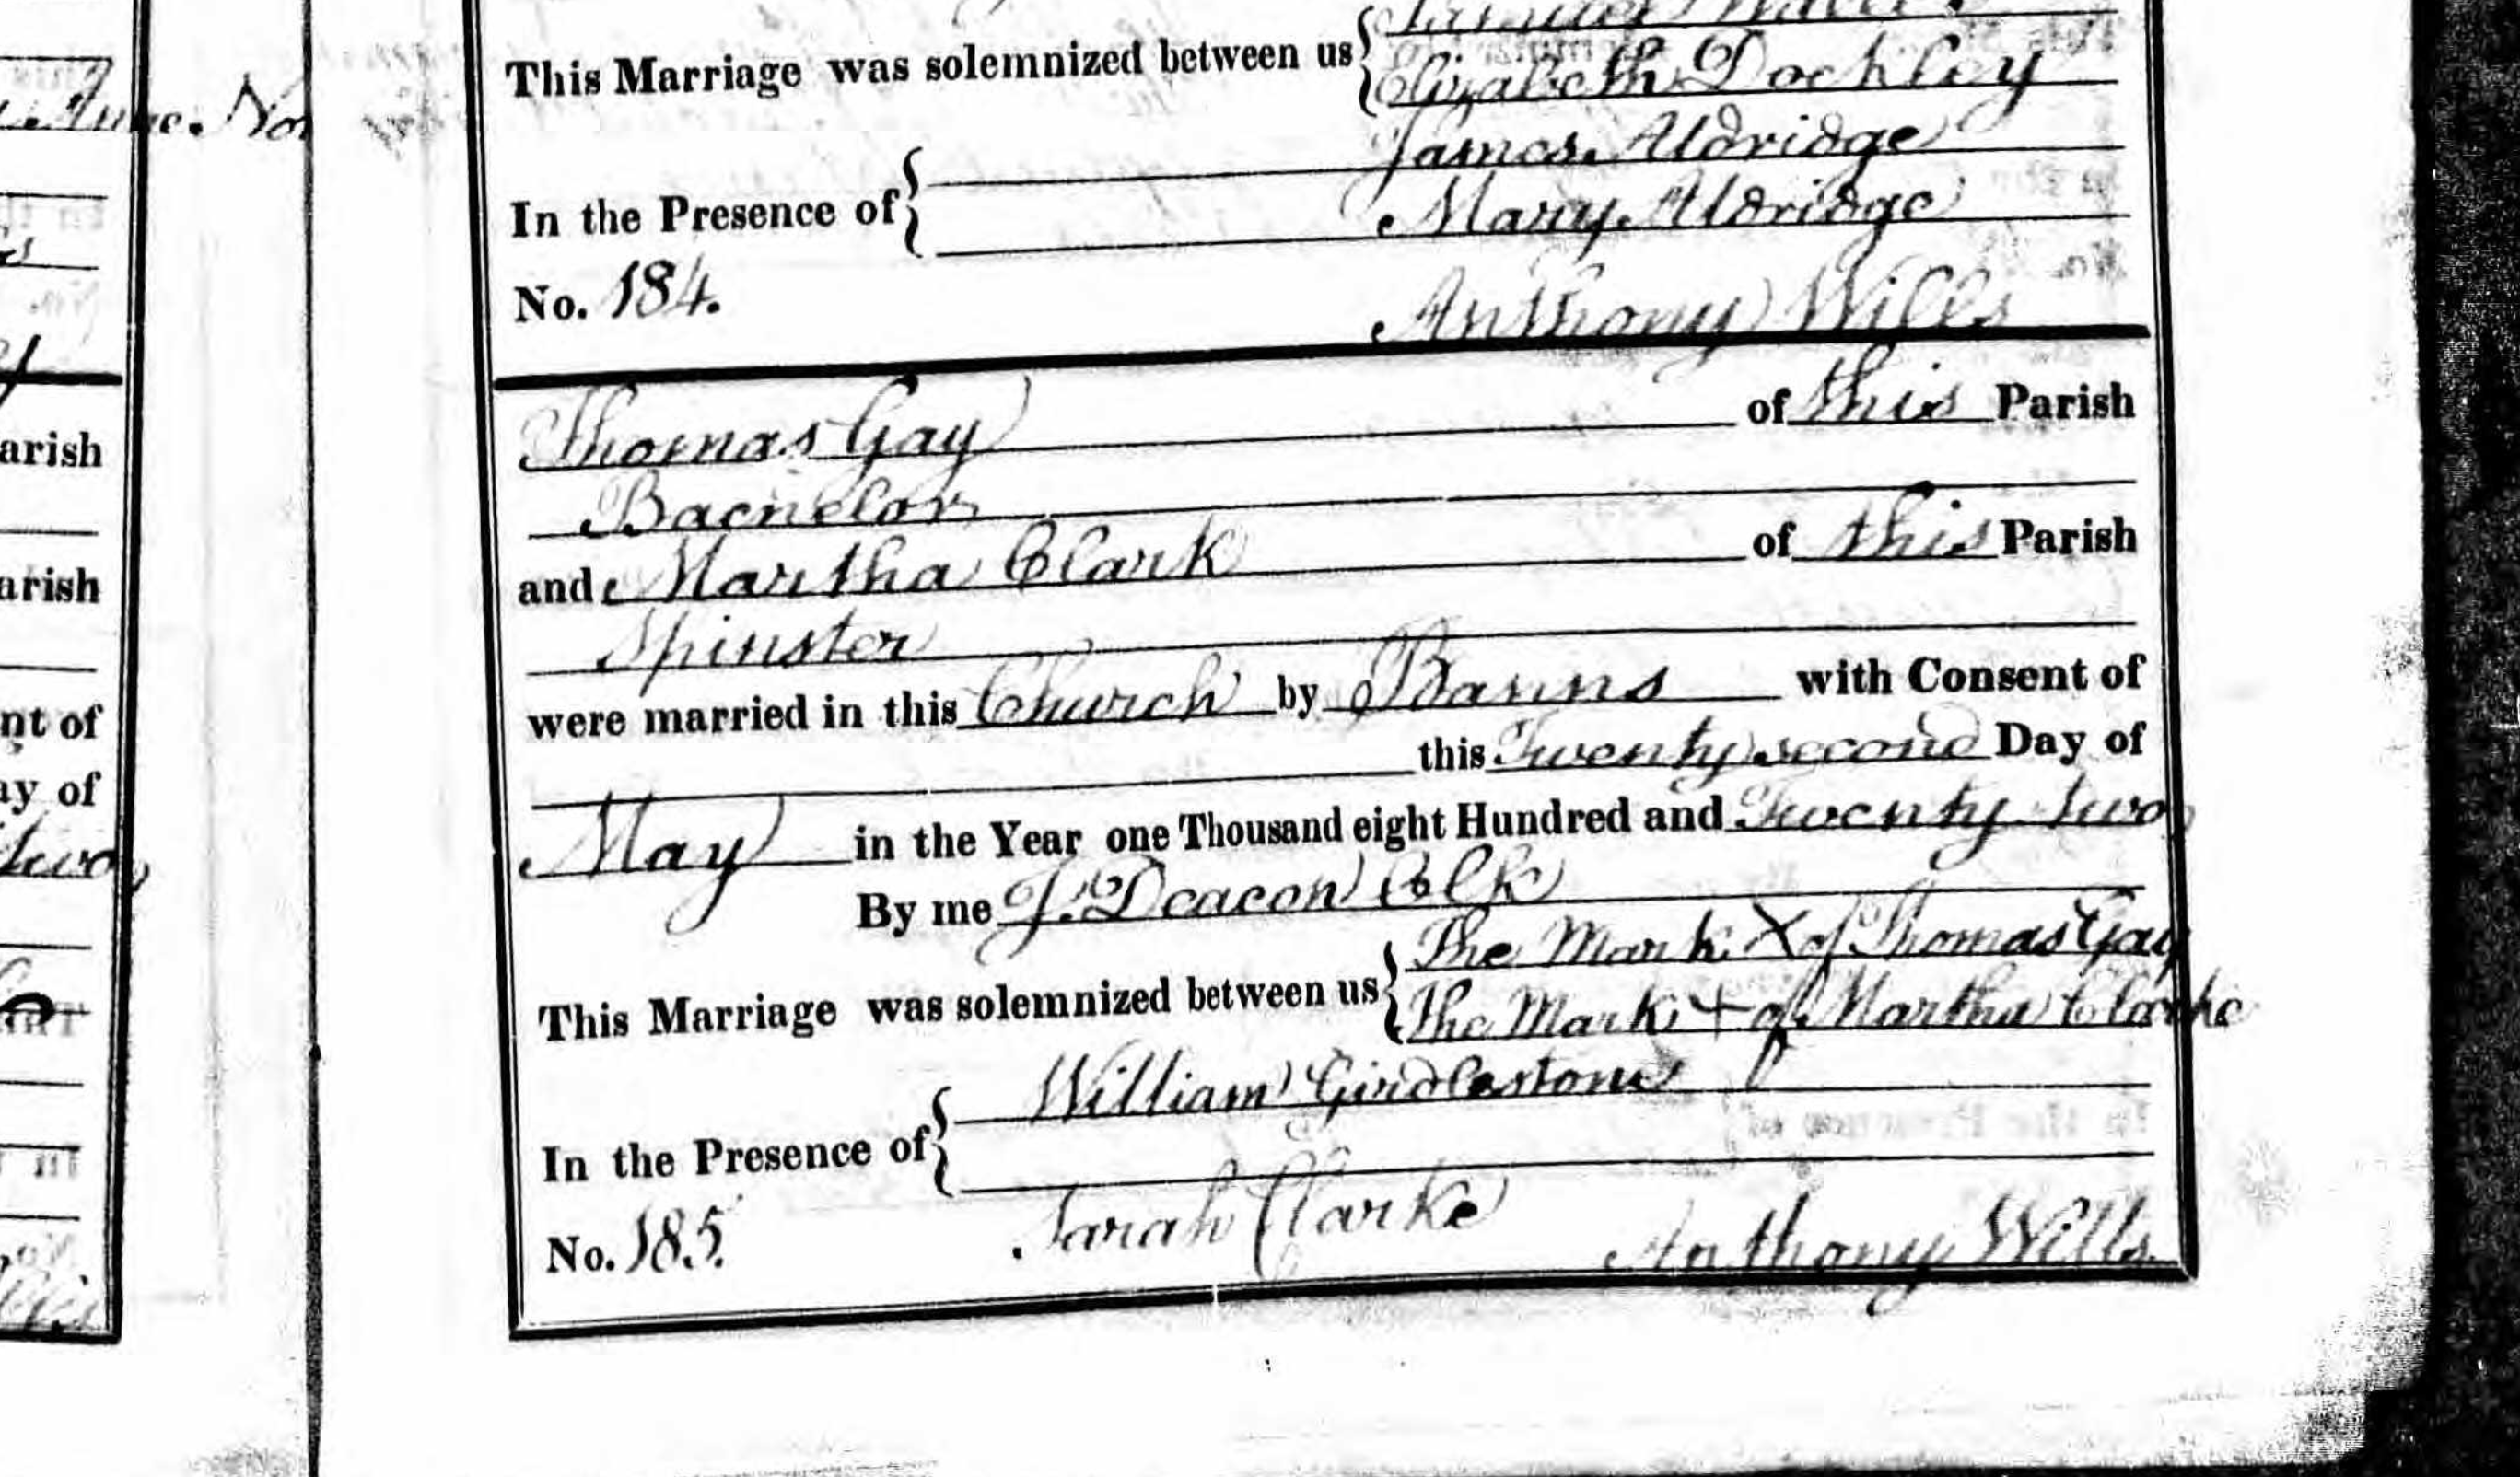 June. No
This Marriage was solemnized between us
Elizabeth Dockley
James Aldridge
In the Presence of
Mary Aldridge
No. 184.
Anthony Wills
arish
arish
nt of
ay of
two
Thomas Gay of this Parish
Bachelor
and Martha Clark of this Parish
Spinster
were married in this Church by Banns with Consent of
this Twenty second Day of
May in the Year one Thousand eight Hundred and Twenty two
By me J. Deacon Clk
The Mark X of Thomas Gay
This Marriage was solemnized between us
The Mark + of Martha Clarke
William Girdlestone
In the Presence of
Sarah Clarke
No. 185.
Anthony Wills